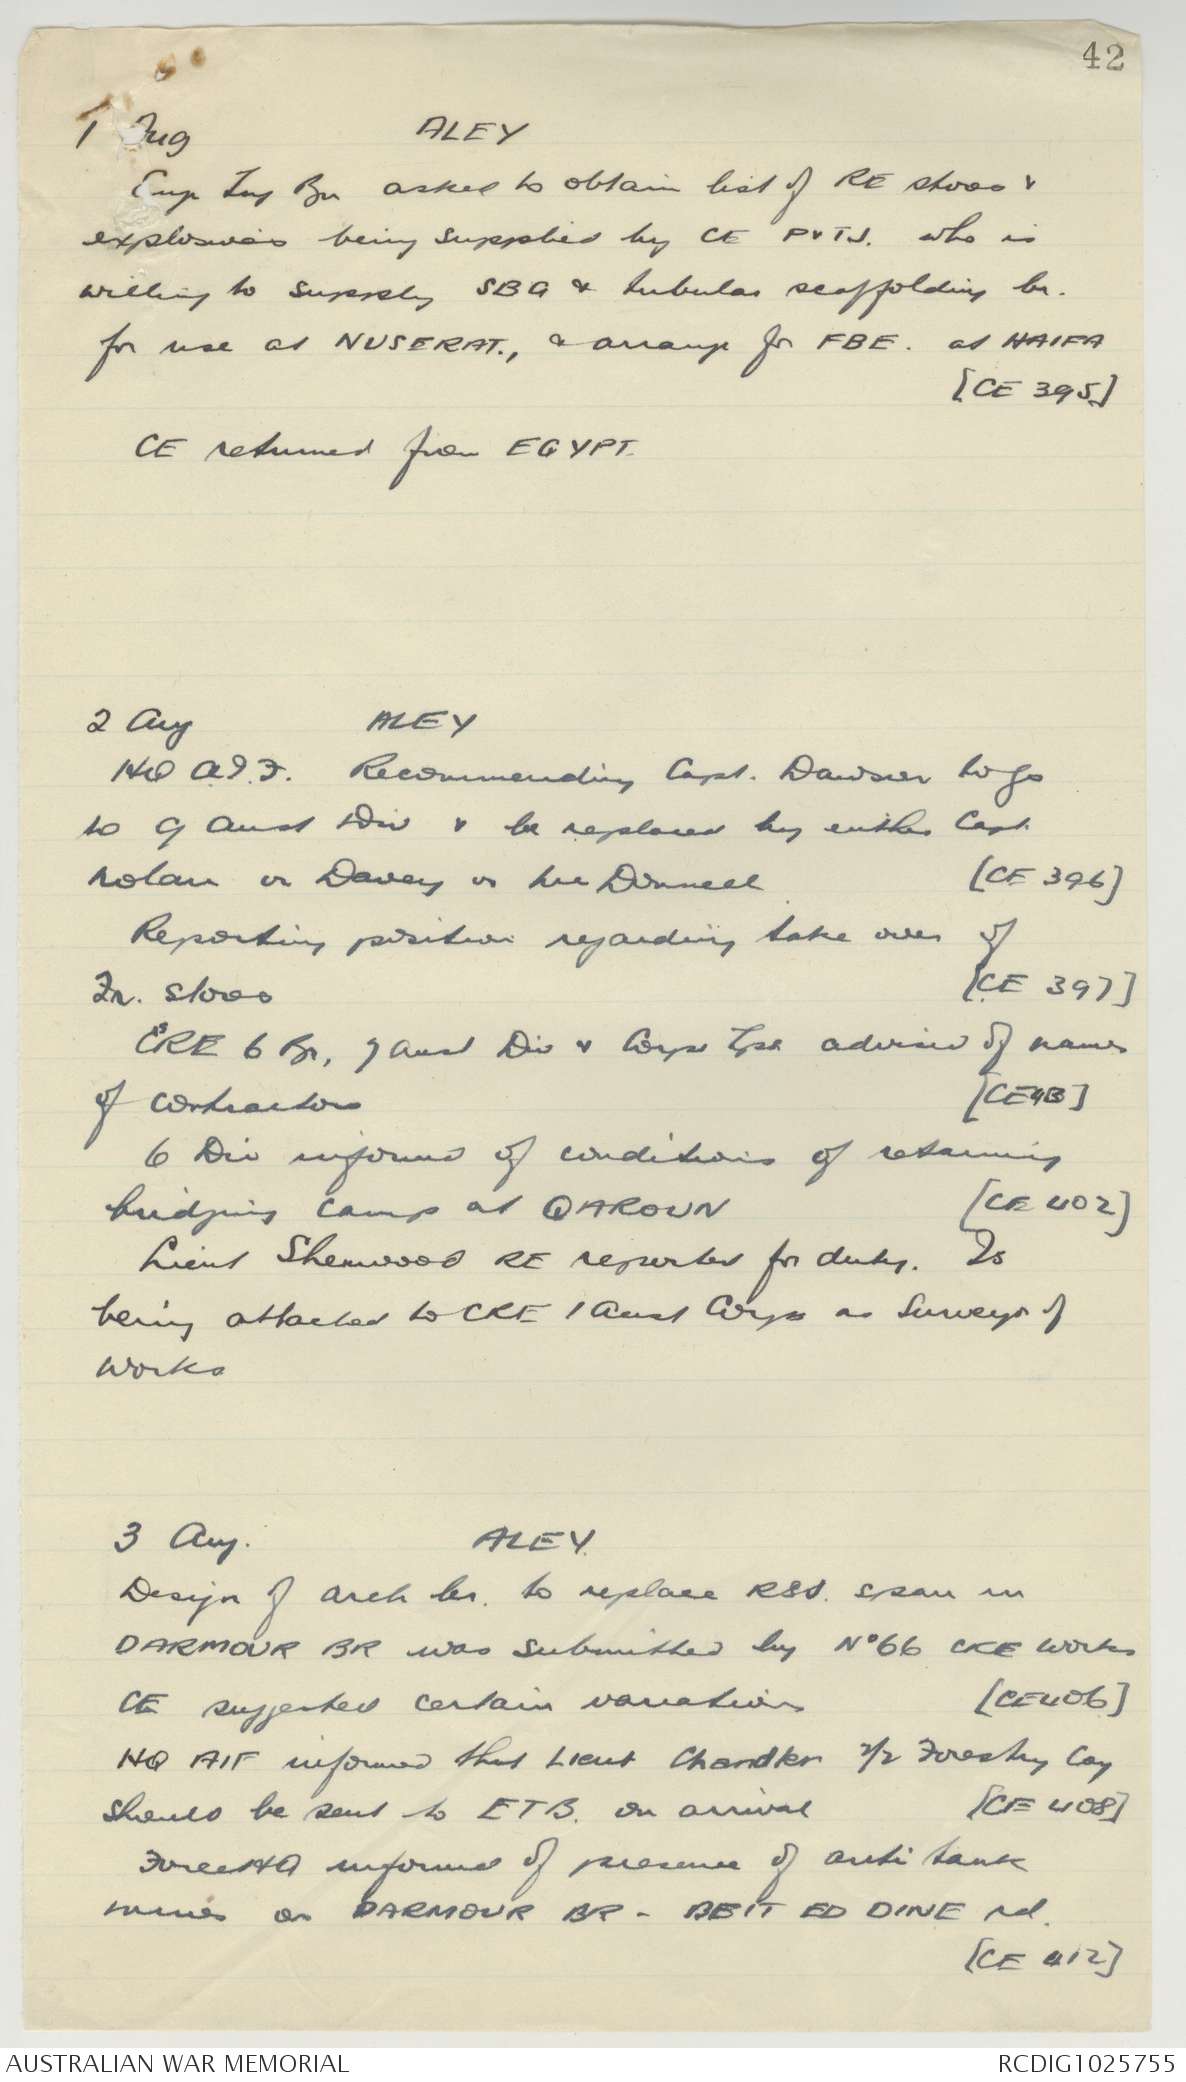 42
1 Aug ALEY
Engr Trg Bn asked to obtain list of RE stores &
explosives being supplied by CE P&TJ. who is
willing to supply SBG & tubular scaffolding br.
for use at NUSERAT., & arrange for FBE. at HAIFA
[CE 395]
CE returned from EGYPT.
2 Aug ALEY
HQ A.I.F. Recommending Capt. Dawson to go
to 9 Aust Div & be replaced by either Capt
Nolan or Davey or McDonnell [CE 396]
Reporting position regarding take over of
Fr. stores [CE 397]
CREs 6 Br, 7 Aust Div & Corps Tps advised of names
of contractors [CE4B]
6 Div informed of conditions of retaining
bridging camp at QAROUN [CE 402]
Lieut Sherwood RE reported for duty. Is
being attached to CRE 1 Aust Corps as Surveyor of
works
3 Aug. ALEY.
Design of arch br. to replace RSJ. span in
DARMOUR BR was submitted by No 66 CRE works
CE suggested certain variations [CE406]
HQ AIF informed that Lieut Chandler 2/2 Forestry Coy
should be sent to ETB. on arrival [CE 408]
Force HQ informed of presence of anti tank
mines on DARMOUR BR - BEIT ED DINE rd.
[CE 412]
AUSTRALIAN WAR MEMORIAL RCDIG1025755